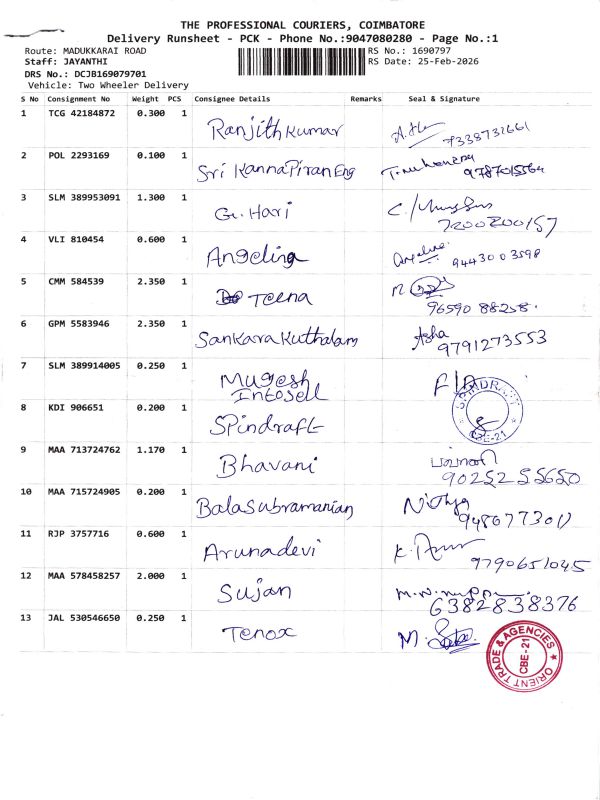 THE PROFESSIONAL COURIERS, COIMBATORE
Delivery Runsheet - PCK - Phone No.:9047080280 - Page No.:1
Route: MADUKKARAI ROAD
RS No.: 1690797
Staff: JAYANTHI
RS Date: 25-Feb-2026
DRS No.: DCJB169079701
Vehicle: Two Wheeler Delivery
S No Consignment No Weight PCS Consignee Details Remarks Seal & Signature
1 TCG 42184872 0.300 1 Ranjith Kumar 7338732661
2 POL 2293169 0.100 1 Sri KannaPiran Eng 9787015564
3 SLM 389953091 1.300 1 G. Hari 7200200157
4 VLI 810454 0.600 1 Angelina 9443003598
5 CMM 584539 2.350 1 Teena 96590 88258
6 GPM 5583946 2.350 1 Sankara Kuthalam Asha 9791273553
7 SLM 389914005 0.250 1 Mugesh Intosell
8 KDI 906651 0.200 1 Spindraft SPINDRAFT CBE-21
9 MAA 713724762 1.170 1 Bhavani 90252 55650
10 MAA 715724905 0.200 1 Balasubramanian Nithya
11 RJP 3757716 0.600 1 Arunadevi 9790651045
12 MAA 578458257 2.000 1 Sujan 6382838376
13 JAL 530546650 0.250 1 Tenox M.
ORIENT TRADE & AGENCIES CBE-21